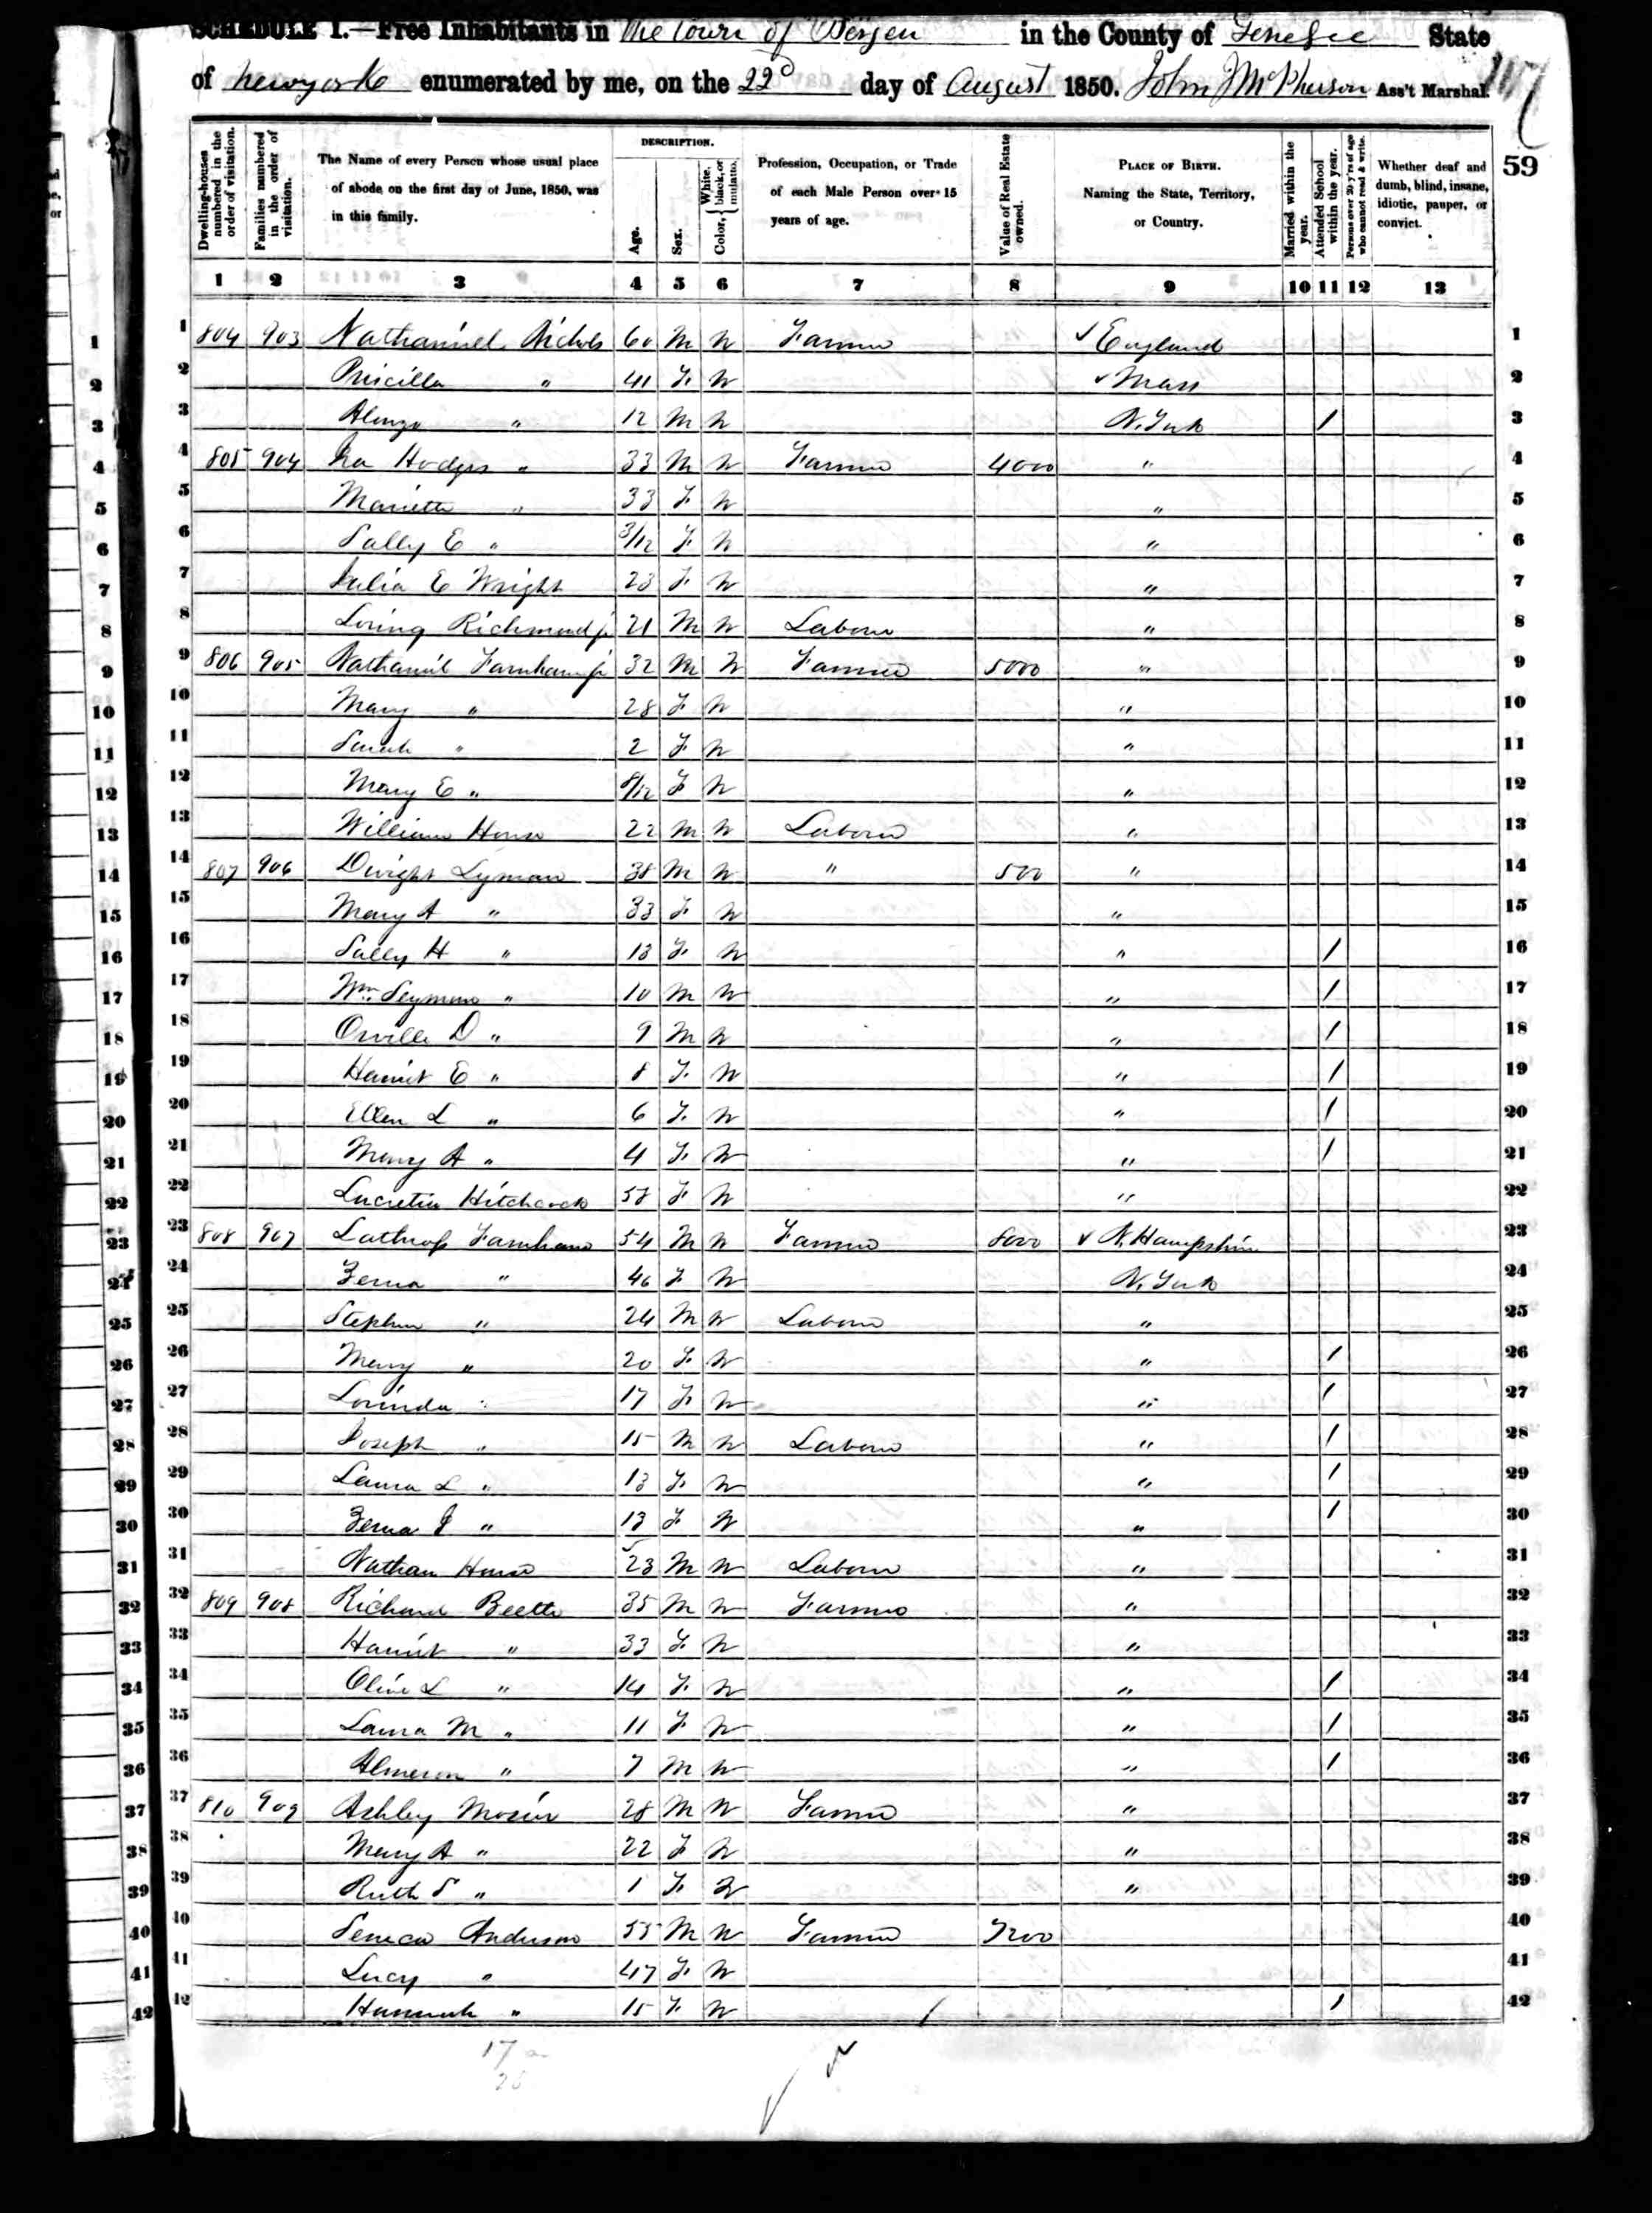 SCHEDULE I.—Free Inhabitants in the Town of Bergen in the County of Genesee State
of Newyork enumerated by me, on the 22d day of August 1850. John J McPherson Ass't Marshal.
59
Dwelling-houses numbered in the order of visitation.
Families numbered in the order of visitation.
The Name of every Person whose usual place of abode on the first day of June, 1850, was in this family.
DESCRIPTION.
Age.
Sex.
Color, { White, black, or mulatto.
Profession, Occupation, or Trade of each Male Person over 15 years of age.
Value of Real Estate owned.
PLACE OF BIRTH. Naming the State, Territory, or Country.
Married within the year.
Attended School within the year.
Persons over 20 y'rs of age who cannot read & write.
Whether deaf and dumb, blind, insane, idiotic, pauper, or convict.
1 2 3 4 5 6 7 8 9 10 11 12 13
1 804 903 Nathaniel Nichols 60 M W Farmer ✓ England 1
2 Priscilla " 41 F W ✓ Mass 2
3 Alonzo " 12 M W N. York / 3
4 805 904 Ira Hodges " 33 M W Farmer 4000 " 4
5 Marietta " 33 F W " 5
6 Sally E " 3/12 F W " 6
7 Julia E Wright 23 F W " 7
8 Loring Richmond jr 21 M W Laborer " 8
9 806 905 Nathaniel Farnham jr 32 M W Farmer 5000 " 9
10 Mary " 28 F W " 10
11 Sarah " 2 F W " 11
12 Mary E " 8/12 F W " 12
13 William House 22 M W Laborer " 13
14 807 906 Dwight Lyman 38 M W " 500 " 14
15 Mary A " 33 F W " 15
16 Sally H " 13 F W " / 16
17 Wm. Seymour " 10 M W " / 17
18 Orville D " 9 M W " / 18
19 Harriet E " 8 F W " / 19
20 Ellen L " 6 F W " / 20
21 Mary A " 4 F W " / 21
22 Lucretia Hitchcock 58 F W " 22
23 808 907 Lathrop Farnham 54 M W Farmer 8000 ✓ N. Hampshire 23
24 Zerua " 46 F W N. York 24
25 Stephen " 24 M W Laborer " 25
26 Mary " 20 F W " / 26
27 Lorinda " 17 F W " / 27
28 Joseph " 15 M W Laborer " / 28
29 Laura L " 13 F W " / 29
30 Zerua J " 13 F W " / 30
31 Nathan House 23 M W Laborer " 31
32 809 908 Richard Beette 35 M W Farmer " 32
33 Harriet " 33 F W " 33
34 Olive L " 14 F W " / 34
35 Laura M " 11 F W " / 35
36 Almeron " 7 M W " / 36
37 810 909 Ashley Mosier 28 M W Farmer " 37
38 Mary A " 22 F W " 38
39 Ruth S " 1 F W " 39
40 Seneca Anderson 55 M W Farmer 7200 40
41 Lucy " 47 F W 41
42 Hannah " 15 F W / 42
17